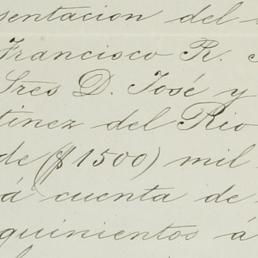 sentacion del
Francisco R.
Sres D. José y
tinez del Rio
de ($1500) mil
á cuenta de
quinientos á